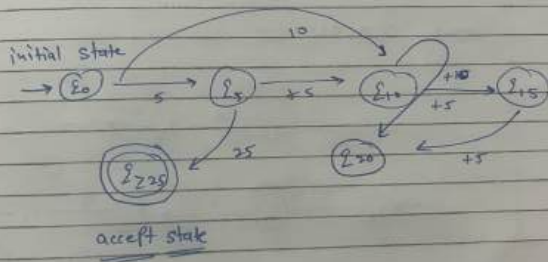 10
initial state
q0 5 q5 +5 q10 +10 +5 q15
25 q20 +5
q≥25
accept state